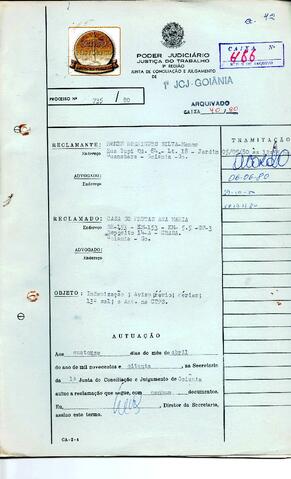 a. 42
PODER JUDICIÁRIO
JUSTIÇA DO TRABALHO
3ª REGIÃO
JUNTA DE CONCILIAÇÃO E JULGAMENTO
DE
1ª JCJ-GOIÂNIA
CAIXA
ARQUIVADO
CAIXA 40, 80
PROCESSO Nº 795 / 80
TRAMITAÇÃO
RECLAMANTE:
Endereço Rua Tupi Qd. 64, Lt. 18 - Jardim
Guanabara - Goiânia-Go.
ADVOGADO:
Endereço
06-06-80
RECLAMADO: CASA DE FRUTAS ANA MARIA
Endereço BR-153 - KM- 5.5 -BR-3
Depósito 14-A - CEASA.
ADVOGADO: Goiânia - Go.
Endereço
OBJETO: Indenização; Aviso prévio; férias;
13º sal; e Ant. na CTPS.
AUTUAÇÃO
Aos quatorze dias do mês de abril
do ano de mil novecentos e oitenta, na Secretaria
da 1ª Junta de Conciliação e Julgamento de Goiânia
autuo a reclamação que segue, com nenhum documentos.
Eu, Diretor da Secretaria,
assino este termo.
CA-2-4